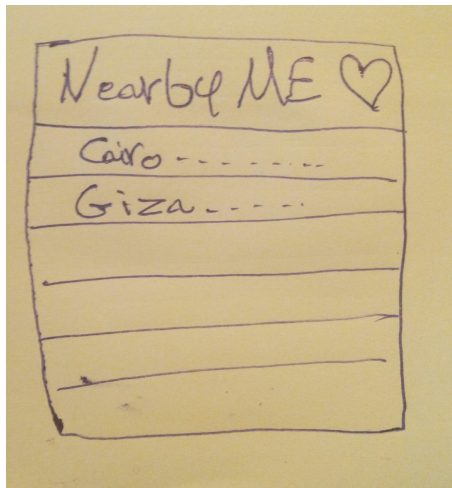 Nearby ME ♡
Cairo - - - - - - - -
Giza - - - - - -